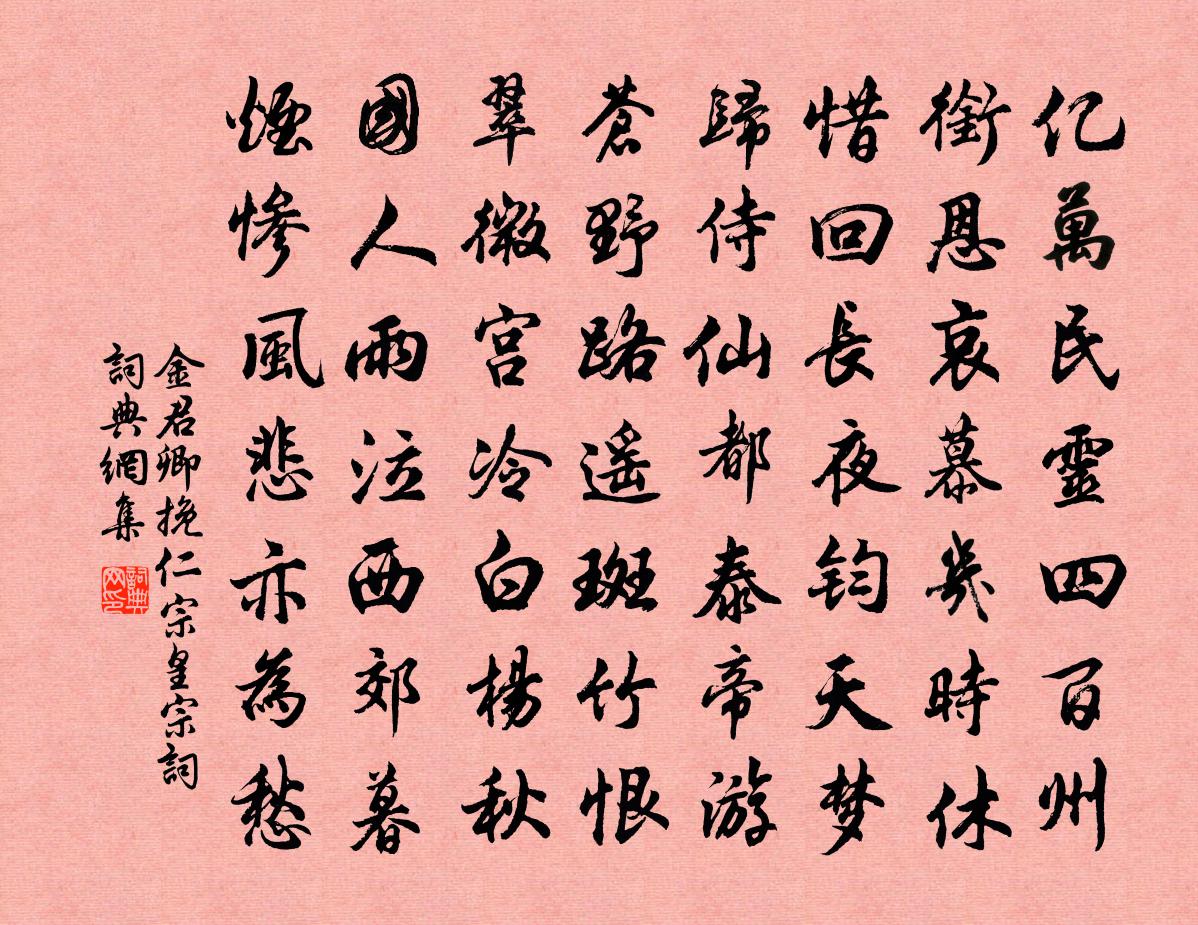 亿萬民靈四百州
銜恩哀慕幾時休
惜回長夜鈞天梦
歸侍仙都泰帝游
蒼野路遥斑竹恨
翠微宫冷白楊秋
國人雨泣西郊暮
煙慘風悲亦為愁
金君卿挽仁宗皇宗詞
詞典網集
詞典网印